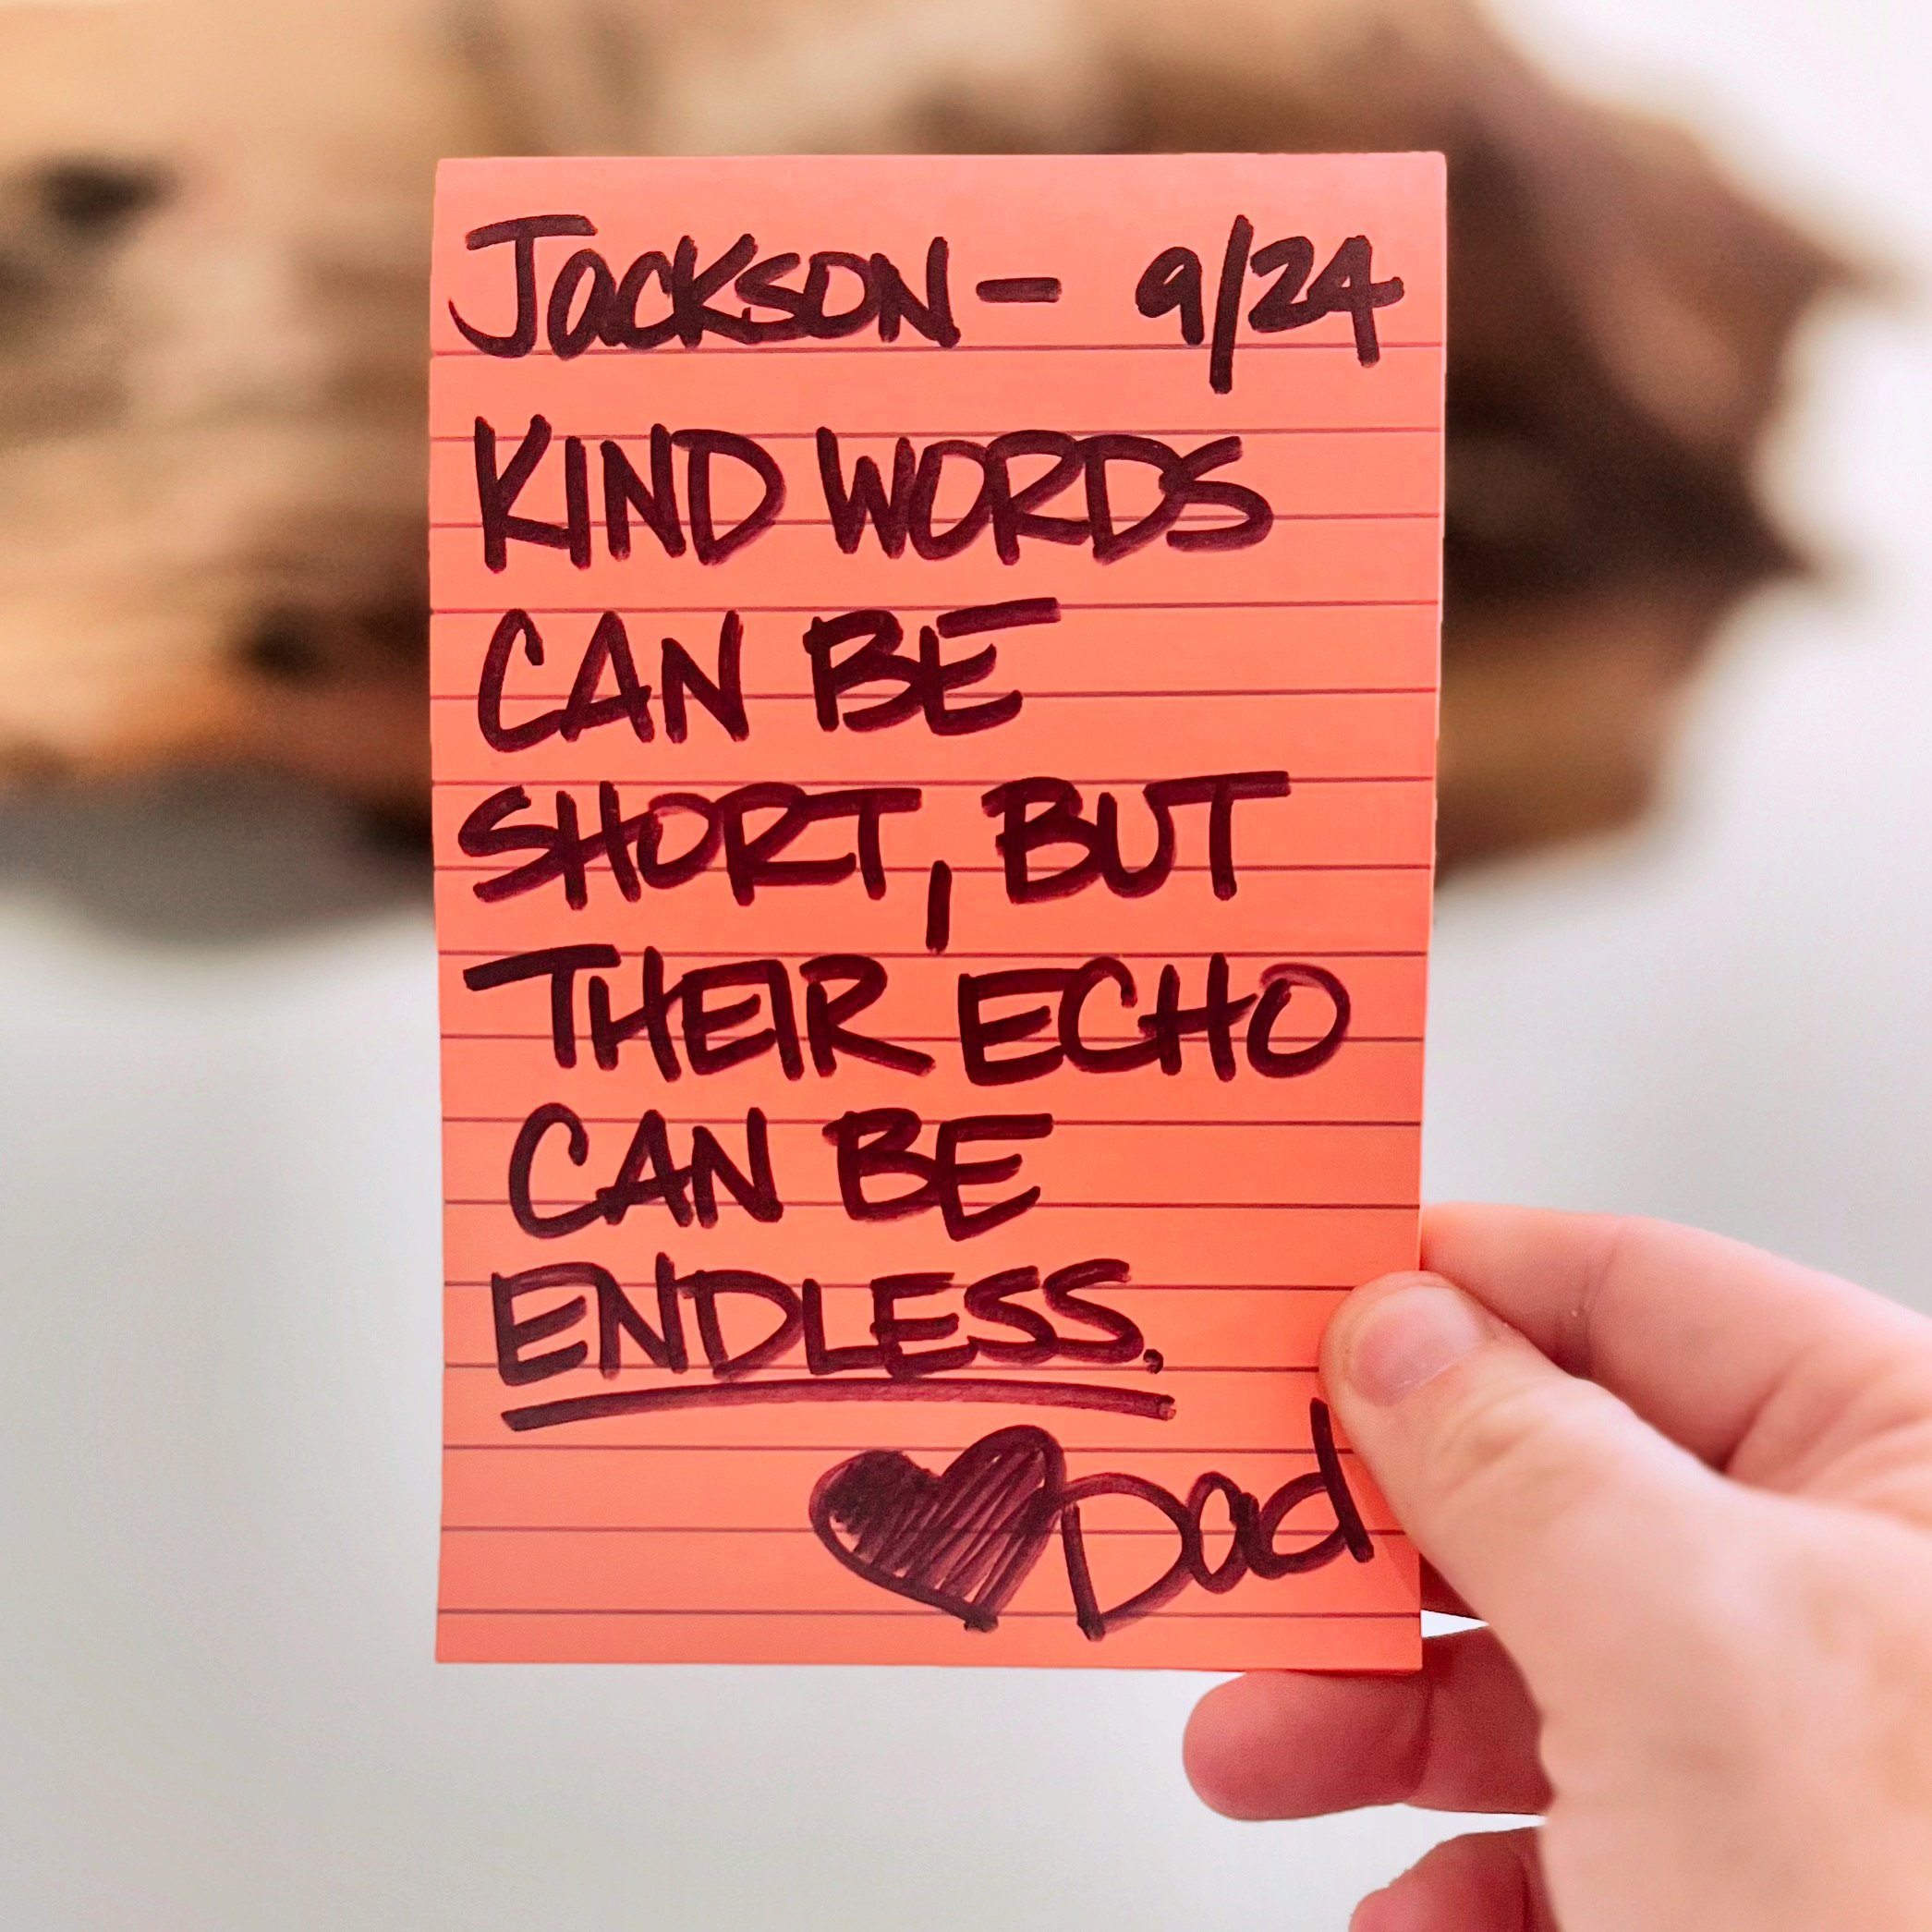 Jackson - 9/24
KIND WORDS
CAN BE
SHORT, BUT
THEIR ECHO
CAN BE
ENDLESS.
Dad